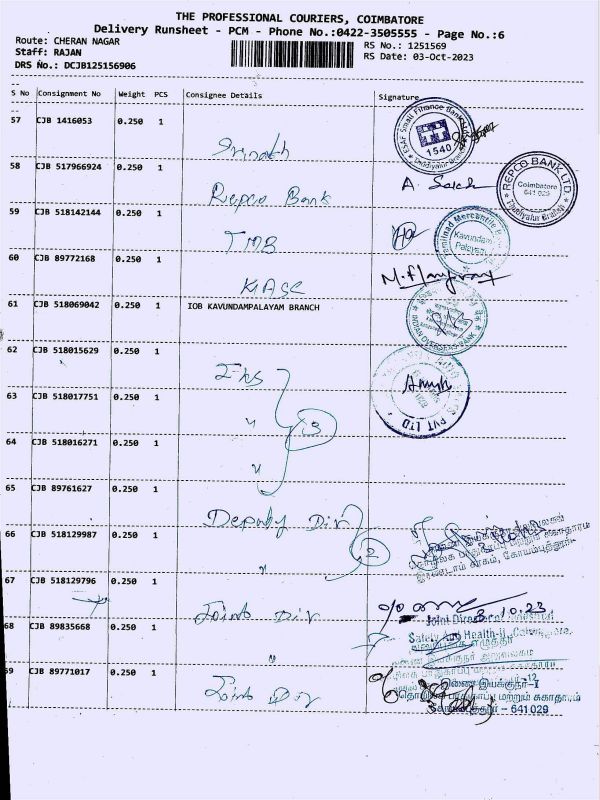 THE PROFESSIONAL COURIERS, COIMBATORE
Delivery Runsheet - PCM - Phone No.:0422-3505555 - Page No.:6
Route: CHERAN NAGAR
RS No.: 1251569
Staff: RAJAN
RS Date: 03-Oct-2023
DRS No.: DCJB125156906
S No Consignment No Weight PCS Consignee Details Signature
57 CJB 1416053 0.250 1
ESAF Small Finance Bank
1540
Thudiyalur
Srinath
58 CJB 517966924 0.250 1
Repco Bank
A.
REPCO BANK LTD.
Coimbatore
641 029
Thudiyalur Branch
59 CJB 518142144 0.250 1
TMB
Tamilnad Mercantile
Kavundam
Palayam
60 CJB 89772168 0.250 1
KASC
61 CJB 518069042 0.250 1 IOB KAVUNDAMPALAYAM BRANCH
INDIAN OVERSEAS BANK
62 CJB 518015629 0.250 1
PVT LTD
63 CJB 518017751 0.250 1
"
3
64 CJB 518016271 0.250 1
"
65 CJB 89761627 0.250 1
Deputy Dir
66 CJB 518129987 0.250 1
"
2
கோயம்புத்தூர்
67 CJB 518129796 0.250 1
Joint Dir
3.10.23
68 CJB 89835668 0.250 1
"
Joint Director
Safety And Health-II,
69 CJB 89771017 0.250 1
Joint Dir
இணை இயக்குநர்-I
தொழிலக பாதுகாப்பு மற்றும் சுகாதாரம்
641029